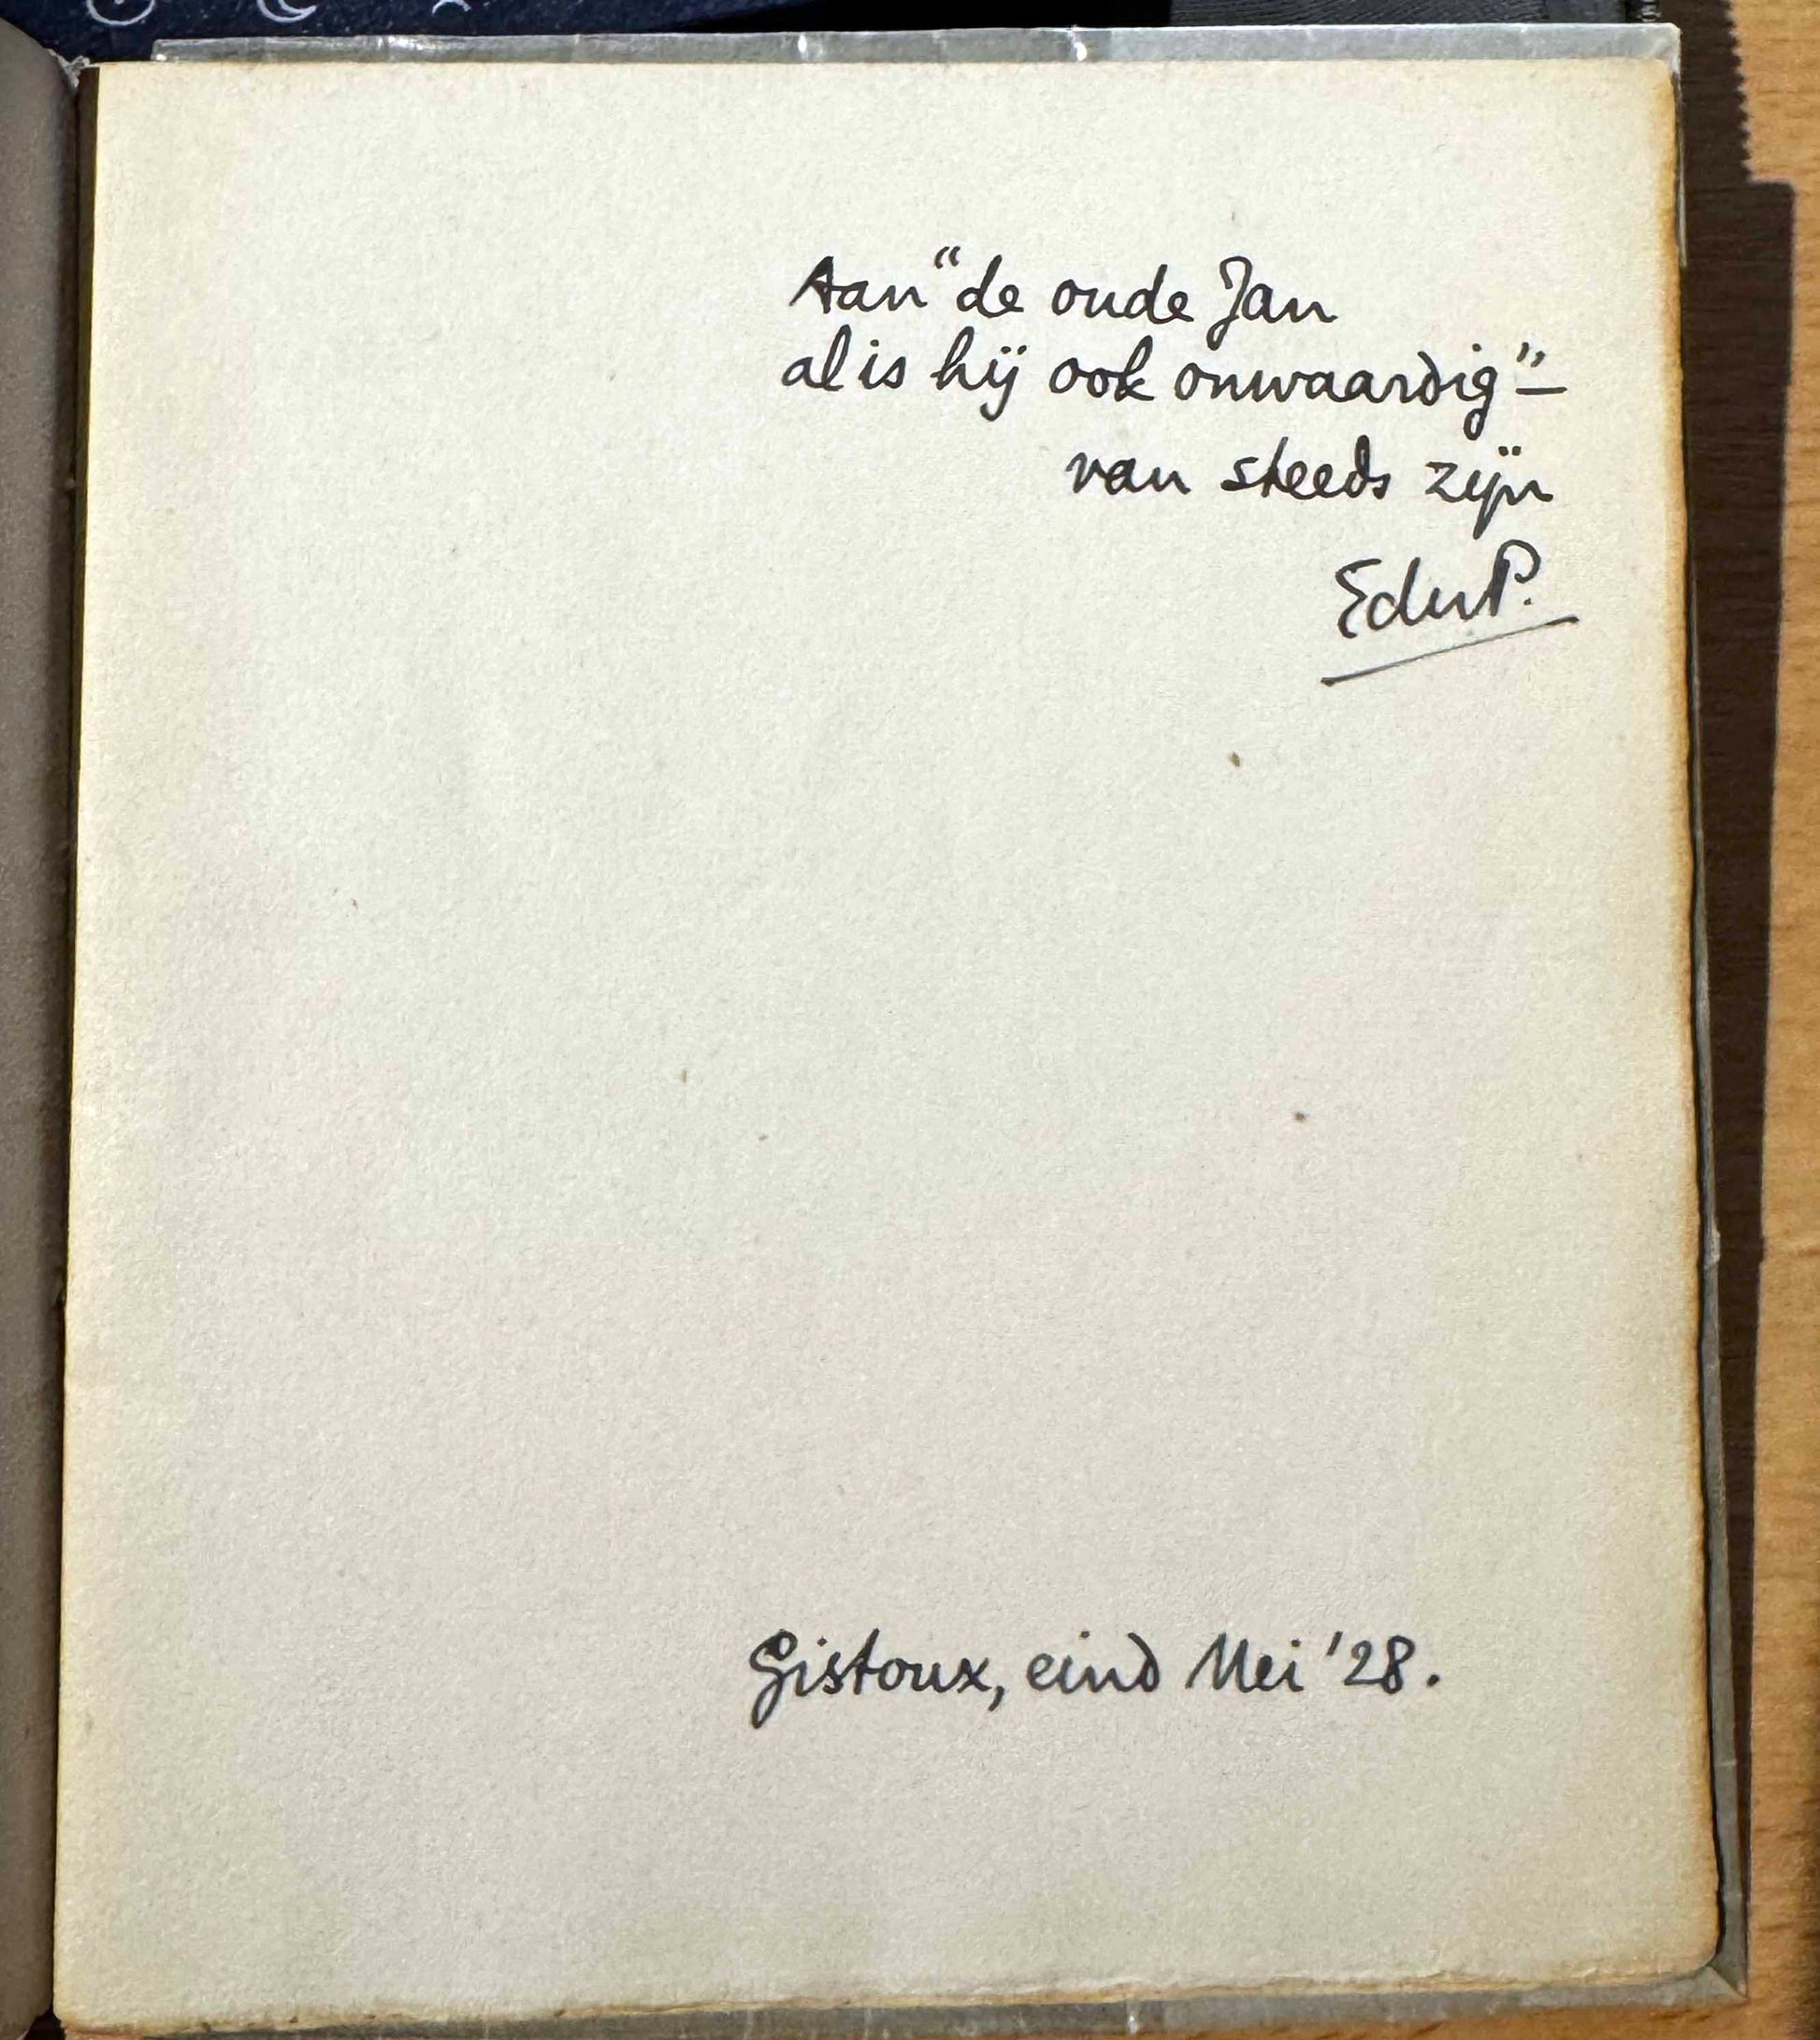 Aan "de oude Jan
al is hij ook onwaardig" —
van steeds zijn
EduP.
Gistoux, eind Mei '28.